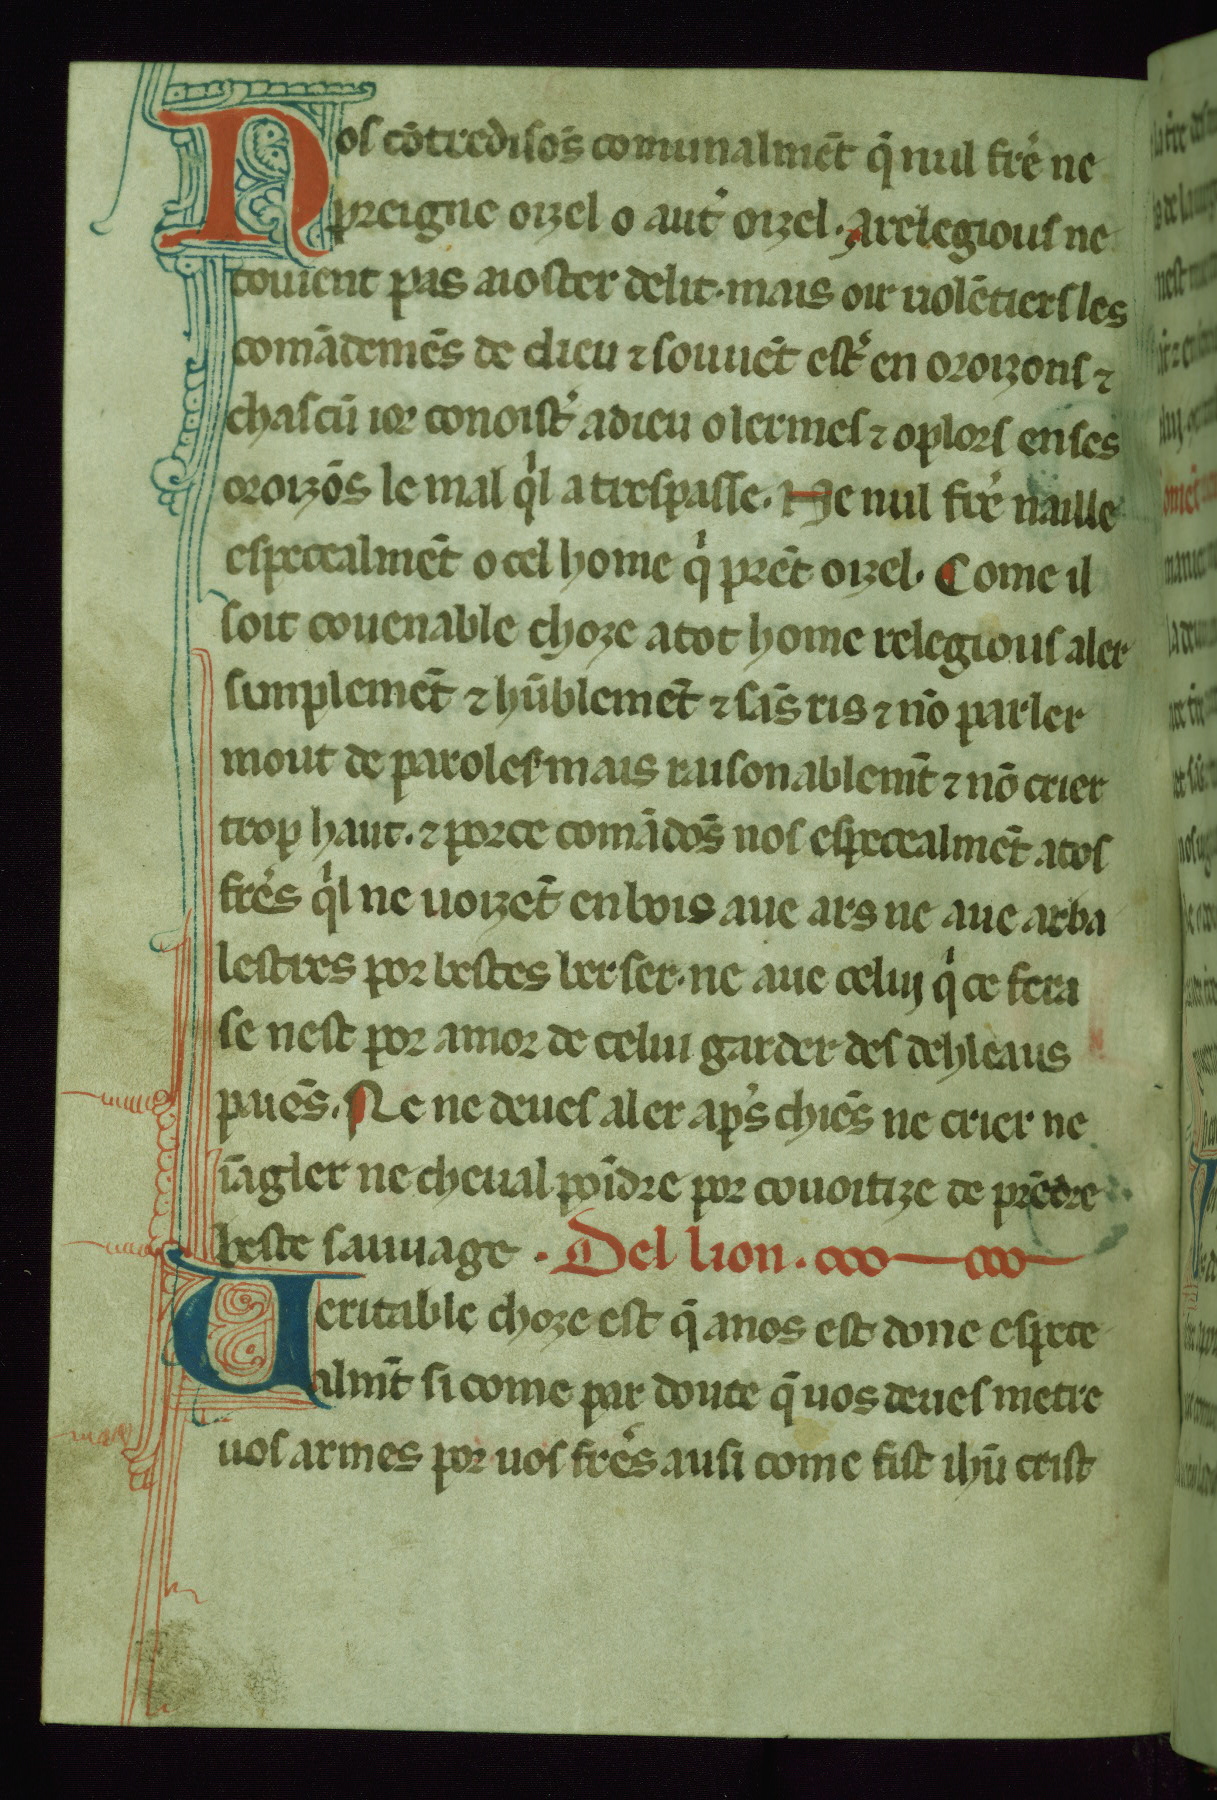 Nos cōtredisōs comunalmēt q̄ nul fre᷒ ne
preigne oizel o aut᷒ oizel. A relegious ne
couient pas aioster delit. mais oir uolētiers les
comādemēs de dieu ⁊ souuēt est᷒ en oroizons ⁊
chascū ior conoist᷒ a dieu o lermes ⁊ o plors en ses
oroizōs le mal qͥl a trespasse. Ne nul fre᷒ naille
especealmēt o cel home qͥ prēt oizel. Come il
soit couenable choze a tot home relegious aler
simplemēt ⁊ hūblemēt ⁊ sās ris ⁊ nō parler
mout de paroles mais raisonablem̄t ⁊ nō crier
trop haut. ⁊ por ce comādōs nos especealmēt a tos
fre᷒s qͥl ne uoizēt en bois aue ars ne aue arba
lestres por bestes berser. ne aue celuy qͥ ce fera
se nest por amor de celui garder des dehleaus
paiēs. Ne ne deues aler ap᷒s chiēs ne crier ne
iāgler ne cheual poīdre por couoitize de prēdre
beste sauuage. Del lion.
Veritable choze est q̄ a nos est done espece
alm̄t si come par doute q̄ uos deues metre
uos armes por uos fre᷒s ausi come fist ihū crist